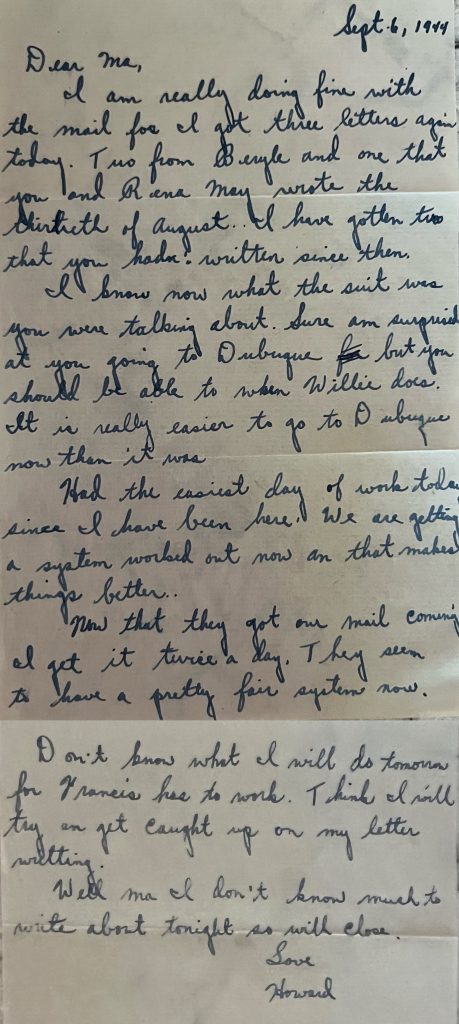 Sept. 6, 1944
Dear Ma,
I am really doing fine with
the mail for I got three letters again
today. Two from Beryle and one that
you and Rena May wrote the
thirtieth of August.. I have gotten two
that you hadn't written since then.
I know now what the suit was
you were talking about. Sure am surprised
at you going to Dubuque but you
should be able to when Willie does.
It is really easier to go to Dubuque
now than it was
Had the easiest day of work today
since I have been here. We are getting
a system worked out now an that makes
things better..
Now that they got our mail coming
I get it twice a day. They seem
to have a pretty fair system now.
Don't know what I will do tomorrow
for Francis has to work. Think I will
try an get caught up on my letter
writting.
Well ma I don't know much to
write about tonight so will close.
Love
Howard